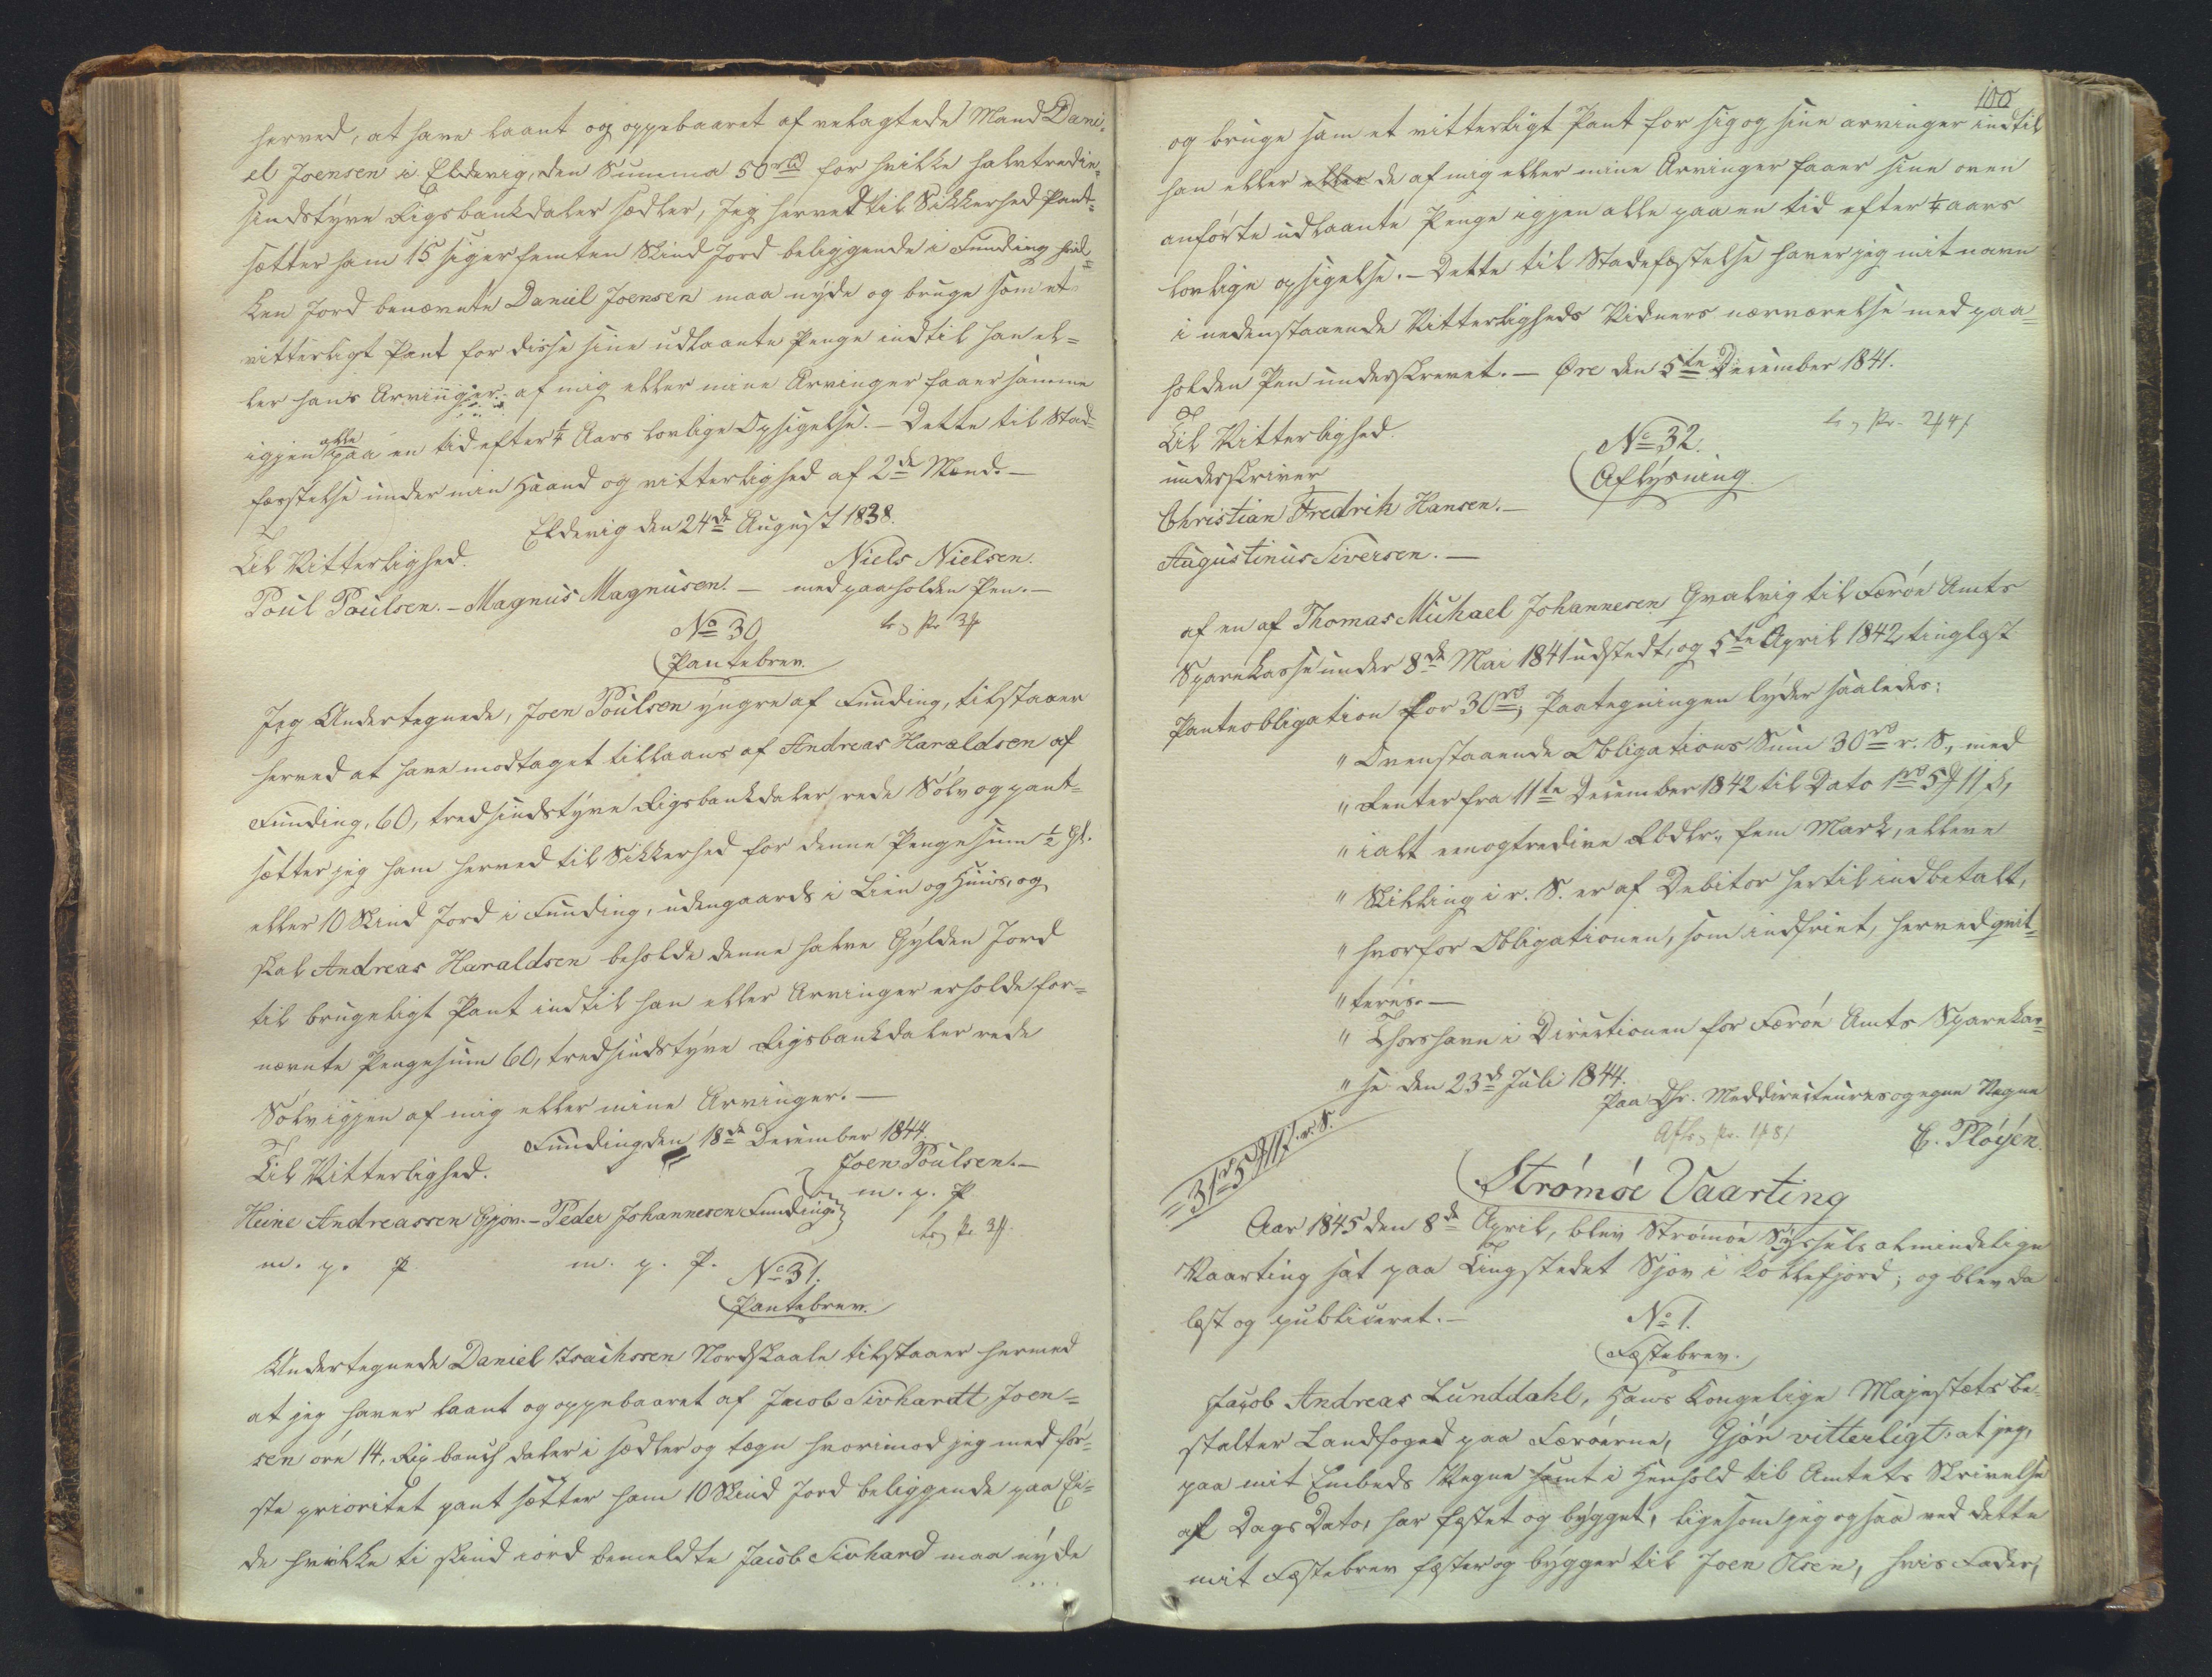 herved, at have laant og oppebaaret af velagtede Mand Dani-
el Joensen i Eldevig, den Summa 50 rbd for hvilke halvtredin-
sindstÿve Rigsbankdaler sedler, Jeg herved til Sikkerhed Pant-
sætter ham 15 siger femten Skind Jord beliggende i Funding hvil-
ken Jord benævnte Daniel Joensen maa nÿde og bruge som et
vitterligt Pant for disse sine udlaante Penge indtil han el-
ler hans Arvinger af mig eller mine Arvinger faaer samme
igjen alle paa en tid efter ¼ Aars lovlige Opsigelse. – Dette til Stad-
fæstelse under min Haand og vitterlighed af 2de Mænd. –
Eldevig den 24de August 1838.
Til Vitterlighed.
Niels Nielsen.
Poul Poulsen. – Magnus Magnusen. – med paaholden Pen. –
No 30
Pantebrev.
Jeg Undertegnede, Joen Poulsen ÿngre af Funding, tilstaaer
herved at have modtaget tillaans af Andreas Haraldsen af
Funding, 60, tredsindstÿve Rigsbankdaler rede Sølv og pant-
sætter jeg ham herved til Sikkerhed for denne Pengesum ½ Gl.
eller 10 Skind Jord i Funding, udengaards i Lien og Huus, og
skal Andreas Haraldsen beholde denne halve Gÿlden Jord
til brugeligt Pant indtil han eller Arvinger erholde for-
nævnte Pengesum 60, tredsindstÿve Rigsbankdaler rede
Sølv igjen af mig eller mine Arvinger. –
Funding den 18de December 1844.
Til Vitterlighed.
Joen Poulsen. –
m. p. P.
Heine Andreassen Gjov. – Peder Johannesen Funding
m. p. P. m. p. P.
No 31.
Pantebrev.
Undertegnede Daniel Isachssen Nordskaale tilstaaer hermed
at jeg haver laant og oppebaaret af Jacob Sivhardt Joen-
sen öre 14, Rigsbansk daler i sedler og tegn hvorimod jeg med för-
ste prioritet pant sætter ham 10 Skind Jord beliggende paa Ei-
de hvilke ti skind iord bemeldte Jacob Sivhard maa nÿde
100
og bruge som et vitterligt Pant for sig og sine arvinger indtil
han eller eller de af mig eller mine Arvinger faaer sine oven
anförte udlaante Penge igjen alle paa en tid efter ¼ aars
lovlige opsigelse. – Dette til Stadefæstelse haver jeg mit navn
i nedenstaaende Vitterligheds Vidners nærværelse med paa-
holden Pen underskrevet. – Öre den 5te December 1841.
Til Vitterlighed.
underskriver
Christian Fredrik Hansen. –
Augustinus Siversen. –
No 32.
Aflÿsning
af en af Thomas Michael Johannesen Qvalvig til Færöe Amts
Sparekasse under 8de Mai 1841 udstedt, og 5te April 1842 tinglæst
Panteobligation for 30 rbd; Paategningen lÿder saaledes:
" Ovenstaaende Obligations Sum 30 rbd r. S., med
" Renter fra 11te December 1842 til Dato 1 rbd 5 ₰ 11 ß,
" ialt eenogtredive Rbdlr, fem Mark, elleve
" Skilling i r. S. er af Debitor hertil indbetalt,
" hvorfor Obligationen, som indfriet, herved qvit-
" teres. –
" Thorshavn i Directionen for Færöe Amts Sparekas-
" se den 23de Juli 1844.
Paa Dhr. Meddirecteures og egne Vegne
C. Pløyen.
= 31 rbd 5 ₰ 11 ß r. S.
Strømøe Vaarting
Aar 1845 den 8de April, blev Strömöe Sÿssels almindelige
Vaarting sat paa Tingstedet Sjov i Kollefjord; og blev da
læst og publiceret. –
No 1.
Fæstebrev.
Jacob Andreas Lunddahl, Hans Kongelige Majestæts be-
stalter Landfoged paa Færöerne, Gjör vitterligt: at jeg,
paa mit Embeds Vegne samt i Henhold til Amtets Skrivelse
af Dags Dato, har fæstet og bÿgget, ligesom jeg ogsaa ved dette
mit Fæstebrev fæster og bÿgger til Joen Olsen, hvis Fader,